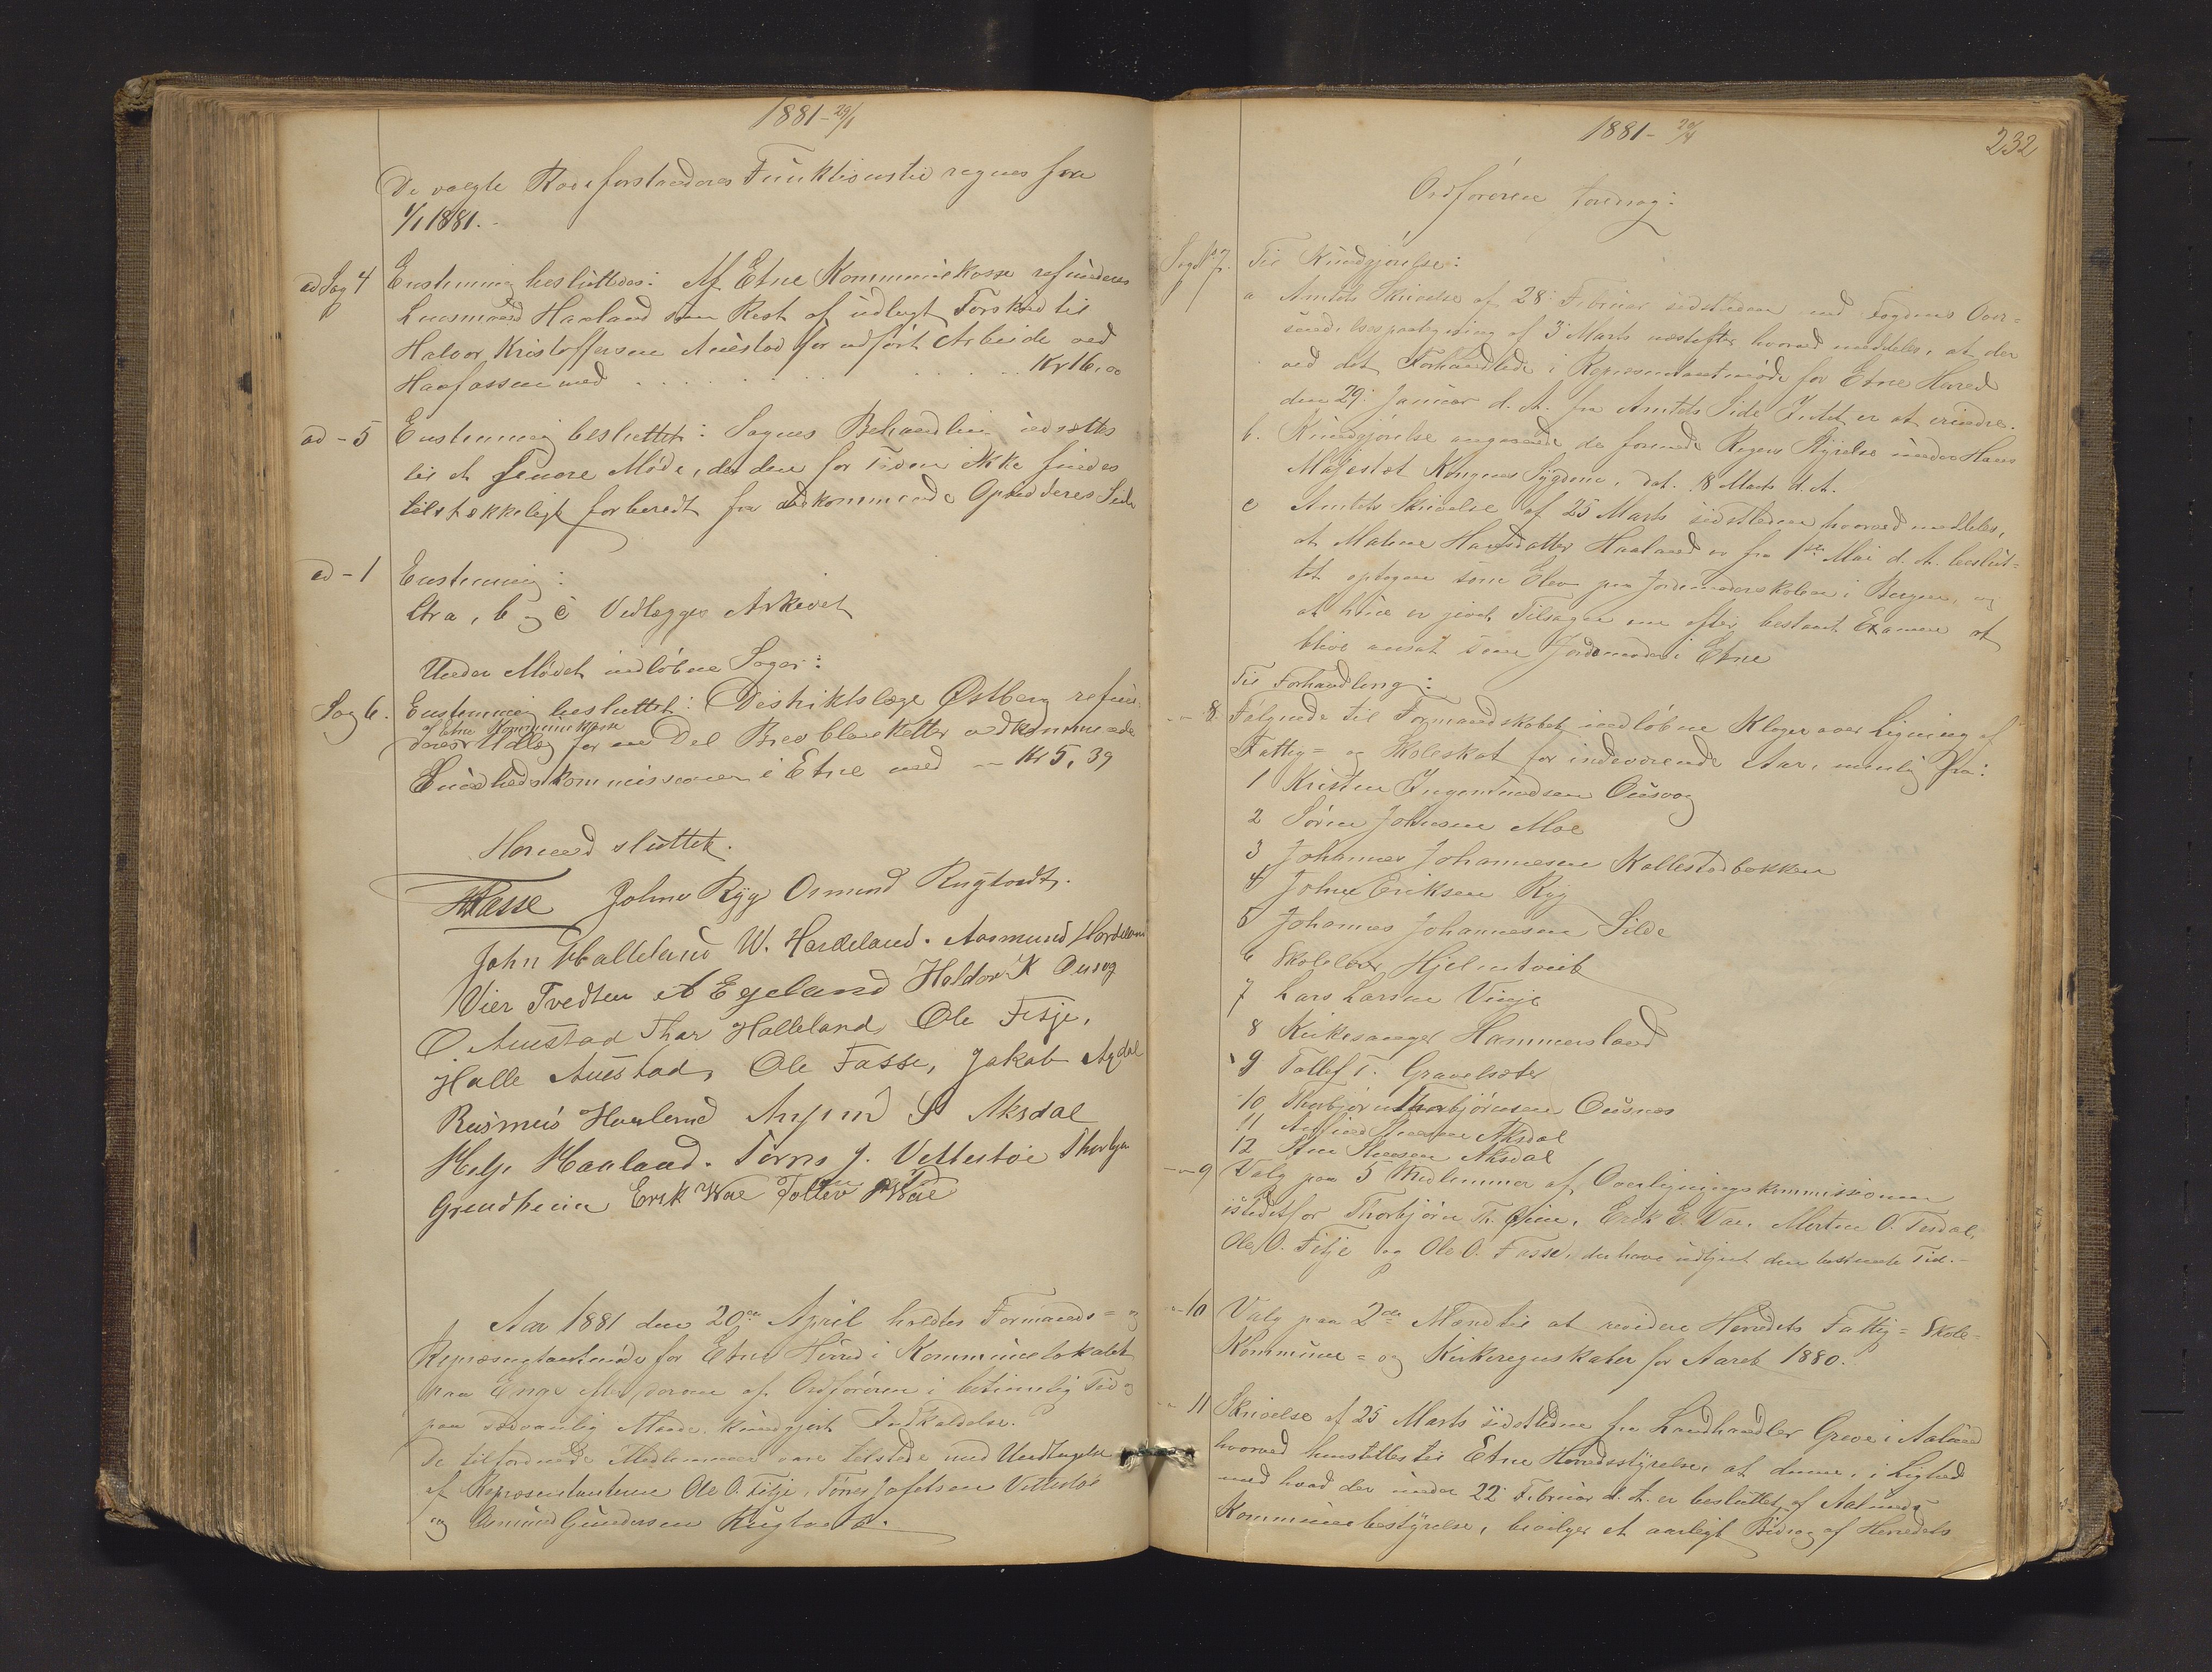 1881 - 29/1
De valgte Rodeforstanderes Funktionstid regnes fra
1/1 1881.
ad Sag 4 Enstemmig besluttedes: Af Etne Kommunekasse refunderes
Lensmand Haaland som Rest af udlagt Forskud til
Halvor Kristoffersen Austad for udført Arbeide ved
Haafassen med . . . . . . Kr 16,00
ad - 5 Enstemmig besluttet: Sagens Behandling udsættes
til et senere Møde, da den for Tiden ikke findes
tilstrækkeligt forberedt fra vedkommende Opsidderes Side
ad - 1 Enstemmig:
Litra, b og c Vedlægges Arkivet
Under Mødet indløbne Sager:
Sag 6. Enstemmig besluttet: Distriktslæge Østberg refun-
deres af Etne Kommunekasse Udlæg for en Del Brevblanketter vedkommende
Sundhedskommissionen i Etne med - Kr 5,39
Hermed sluttet.
Fasse Johne Ryg Osmund Rugtvedt.
John Halleland W. Hardeland. Aasmund Hardeland
Vier Tvedten A Egeland Haldor K Ousvg
O. Austad Thor Halleland Ole Fitje,
Halle Austad, Ole Fasse, Jakob Agdal
Rasmus Haaland S Aksdal
Helje Haaland. Tørres J. Vettestøe Thorbjn
Grindheim Erik Wae Tollev Wae
Aar 1881 den 20de April holdtes Formands- og
Repræsentantmøde for Etne Herred i Kommunelokalet
paa Enge efter forom af Ordføreren i betimelig Tid og
paa sedvanlig Maade kundgjort Indkaldelse.
De tilforordnede Medlemmer vare tilstede med Undtagelse
af Repræsentanterne Ole O. Fitje, Tørres Jofelsen Vettestøe
og Osmund Gundersen Rugtvedt.
1881 - 20/4
232
Ordføreren foredrog:
Sag No 7. Til Kundgjørelse:
a Amtets Skrivelse af 28 Februar sidstleden med Fogdens Over-
sendelsespaategning af 3 Marts næstefter hvorved meddeles, at der
ved det Forhandlede i Repræsentantmøde for Etne Herred
den 29 Januar d. A. fra Amtets Side Intet er at erindre.
b. Kundgjørelse angaaende de formede Rigens Styrelse under Hans
Majestæt Kongens Sygdom, dat. 8 Marts d. A.
c Amtets Skrivelse af 25 Marts sidstleden hvorved meddeles,
at Malene Hansdatter Haaland er fra 1ste Mai d. A. beslut-
tet optagen som Elev paa Jordemoderskolen i Bergen, og
at hun er givet Tilsagn om efter bestaaet Examen at
blive ansat som Jordemoder i Etne
Til Forhandling:
- " 8. Følgende til Formandskabet indløbne Klager over Ligning af
Fattig- og Skoleskat for indeværende Aar, nemlig fra:
1 Kristen Ingemundsen Ousvog
2 Søren Johnsen Moe
3 Johannes Johannesen Kallestadbakken
4 Johne Eriksen Ryg
5 Johannes Johannesen Silde
6 Skolelærer Hjelmtveit
7 Lars Larsen Vinje
8 Kirkesanger Hammersland
9 Tollef T. Gravelsæter
10 Thorbjørn Thorbjørnsen Ousnes
11 Anfind Aksdal
12 Aksdal
- " 9 Valg paa 5 Medlemmer af Overligningskommissionen
istedetfor Thorbjørn Th. Øien, Erik E. Vae, Morten O. Tesdal,
Ole O. Fitje og Ole O. Fasse, der have udtjent den bestemte Tid. -
- " 10 Valg paa 2de Mænd til at revidere Herredets Fattig- Skole-
Kommune- og Kirkeregnskaber for Aaret 1880.
- " 11 Skrivelse af 25 Marts sidstleden fra Landhandler Greve i Aalund
hvorved henstilles til Etne Herredsstyrelse, at denne, i Lighed
med hvad der under 22 Februar d. A. er besluttet af Aalunds
Kommunebestyrelse, bevilger et aarligt Bidrag af Herredets